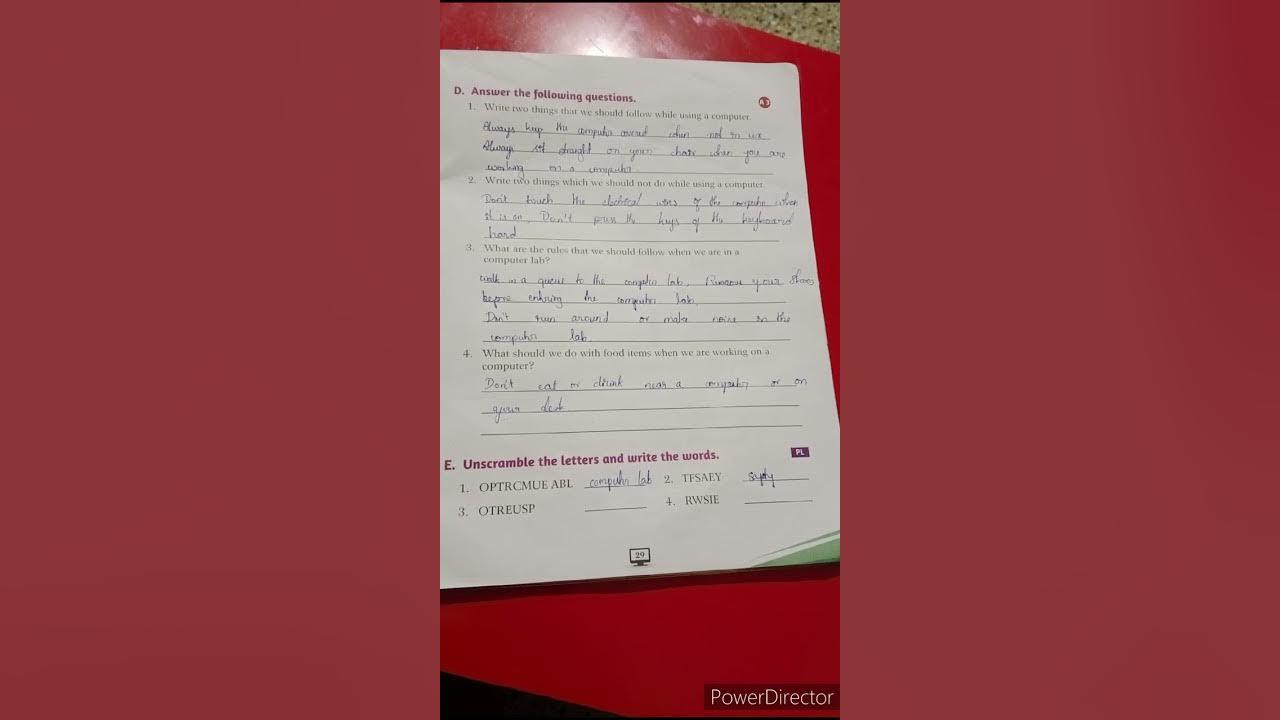 D. Answer the following questions.
A 3
1. Write two things that we should follow while using a computer.
Always keep the computer covered when not in use
Always sit straight on your chair when you are
working on a computer.
2. Write two things which we should not do while using a computer.
Don't touch the electrical wires of the computer when
it is on. Don't press the keys of the keyboard
hard
3. What are the rules that we should follow when we are in a
computer lab?
walk in a queue to the computer lab. Remove your shoes
before entering the computer lab.
Don't run around or make noise in the
computer lab.
4. What should we do with food items when we are working on a
computer?
Don't eat or drink near a computer or on
your desk
E. Unscramble the letters and write the words.
PL
1. OPTRCMUE ABL computer lab 2. TFSAEY safety
3. OTREUSP 4. RWSIE
29
PowerDirector